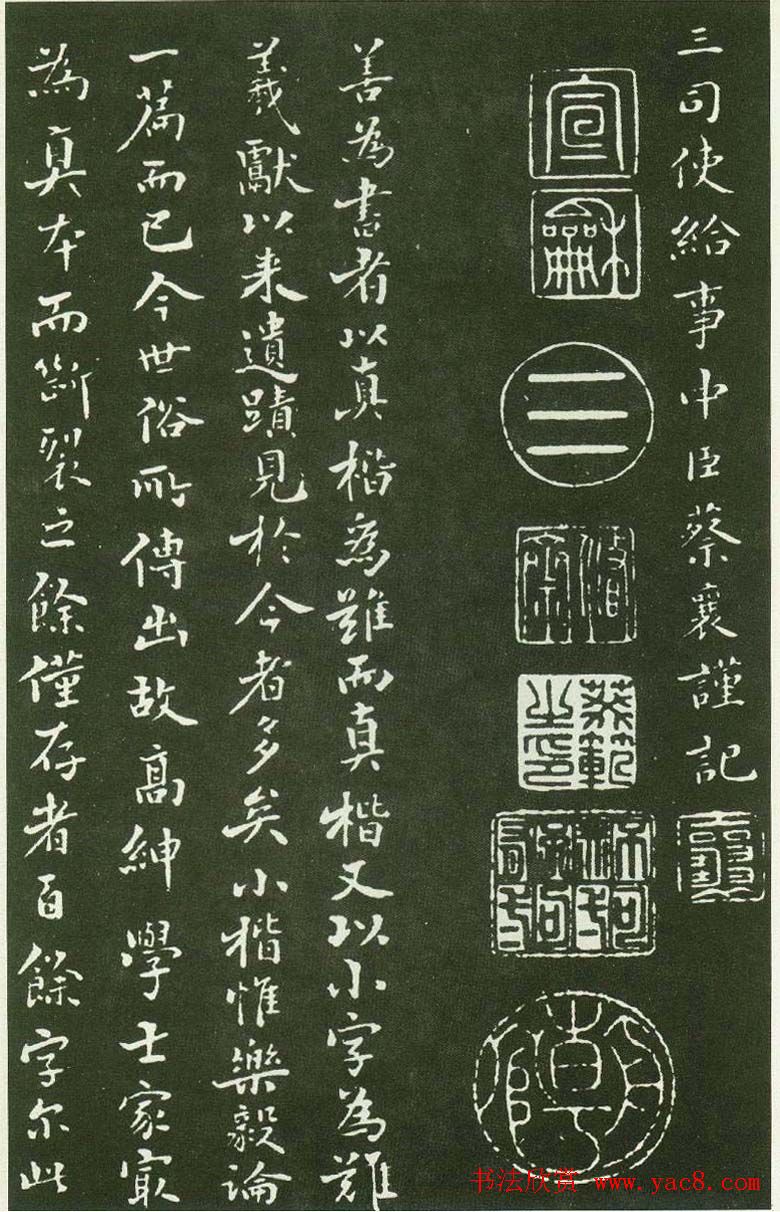 三司使給事中臣蔡襄謹記
宣
龢
三
蔡範
之印
善為書者以真楷為難而真楷又以小字為難
羲獻以来遺蹟見於今者多矣小楷惟樂毅論
一篇而已今世俗所傳出故高紳學士家㝡
為真本而斷裂之餘僅存者百餘字尓此
书法欣赏 www.yac8.com